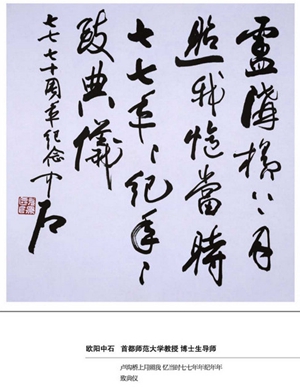 盧溝橋上月
照我憶當時
七七年〻紀年〻
致典儀
七七七十周年紀念中石
欧阳中石 首都师范大学教授 博士生导师
卢沟桥上月照我 忆当时七七年年纪年年
致典仪